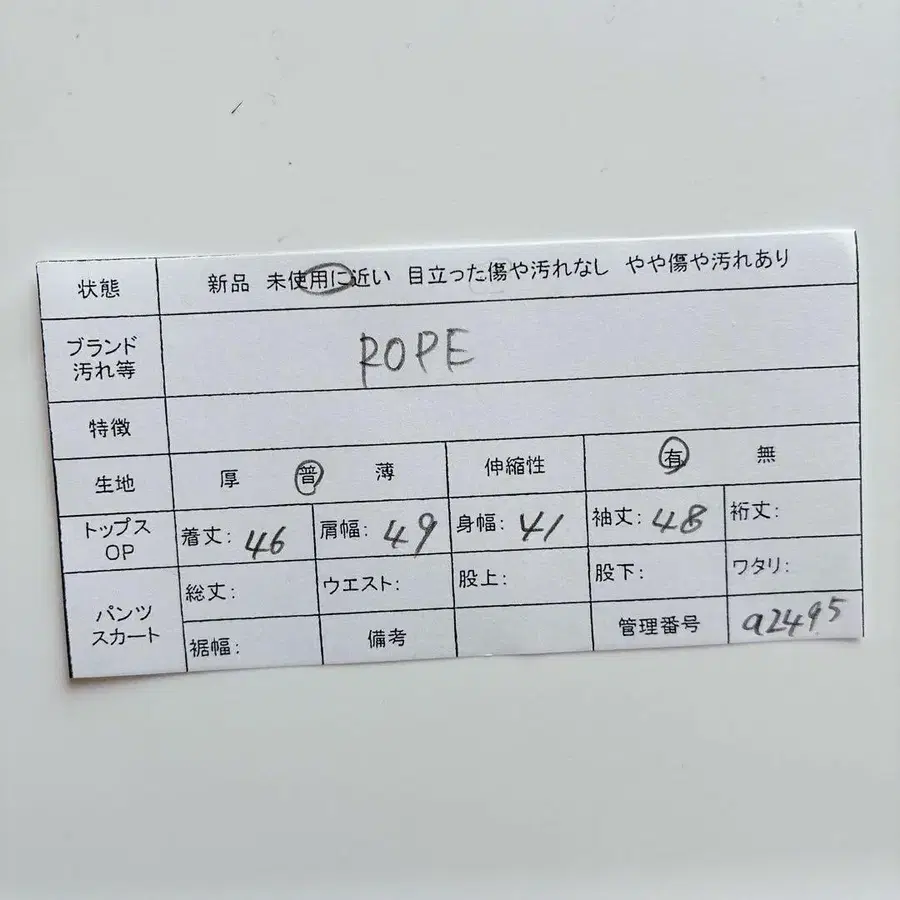 状態 新品 未使用に近い 目立った傷や汚れなし やや傷や汚れあり
ブランド
汚れ等 ROPE
特徴
生地 厚 普 薄 伸縮性 有 無
トップス
OP 着丈: 46 肩幅: 49 身幅: 41 袖丈: 48 裄丈:
パンツ
スカート 総丈: ウエスト: 股上: 股下: ワタリ:
裾幅: 備考 管理番号 a2495